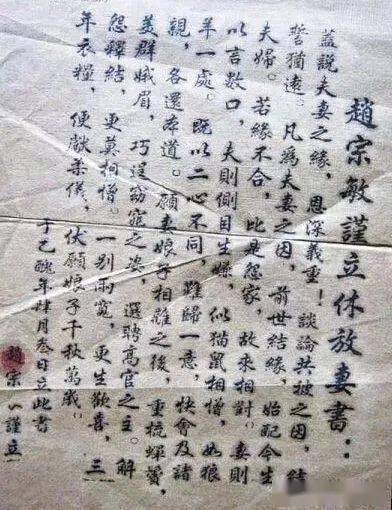 趙宗敏謹立休放妻書：
蓋説夫妻之緣，恩深義重！談論共被之因，結
誓猶遠。凡爲夫妻之因，前世結緣，始配今生
夫婦。若緣不合，此是怨家，故來相對。妻則
以言數口，夫則側目生嫌，似猫鼠相憎，如狼
羊一處。既以二心不同，難歸一意，快會及諸
親，各還本道。願妻娘子相離之後，重梳蟬鬢，
美群娥眉，巧逞窈窕之姿，選聘高官之主。解
怨釋結，更莫相憎。一别兩寬，更生歡喜，三
年衣糧，便獻柔儀，伏願娘子千秋萬歲。
于乙醜年肆月叁日立此書
趙宗 謹立